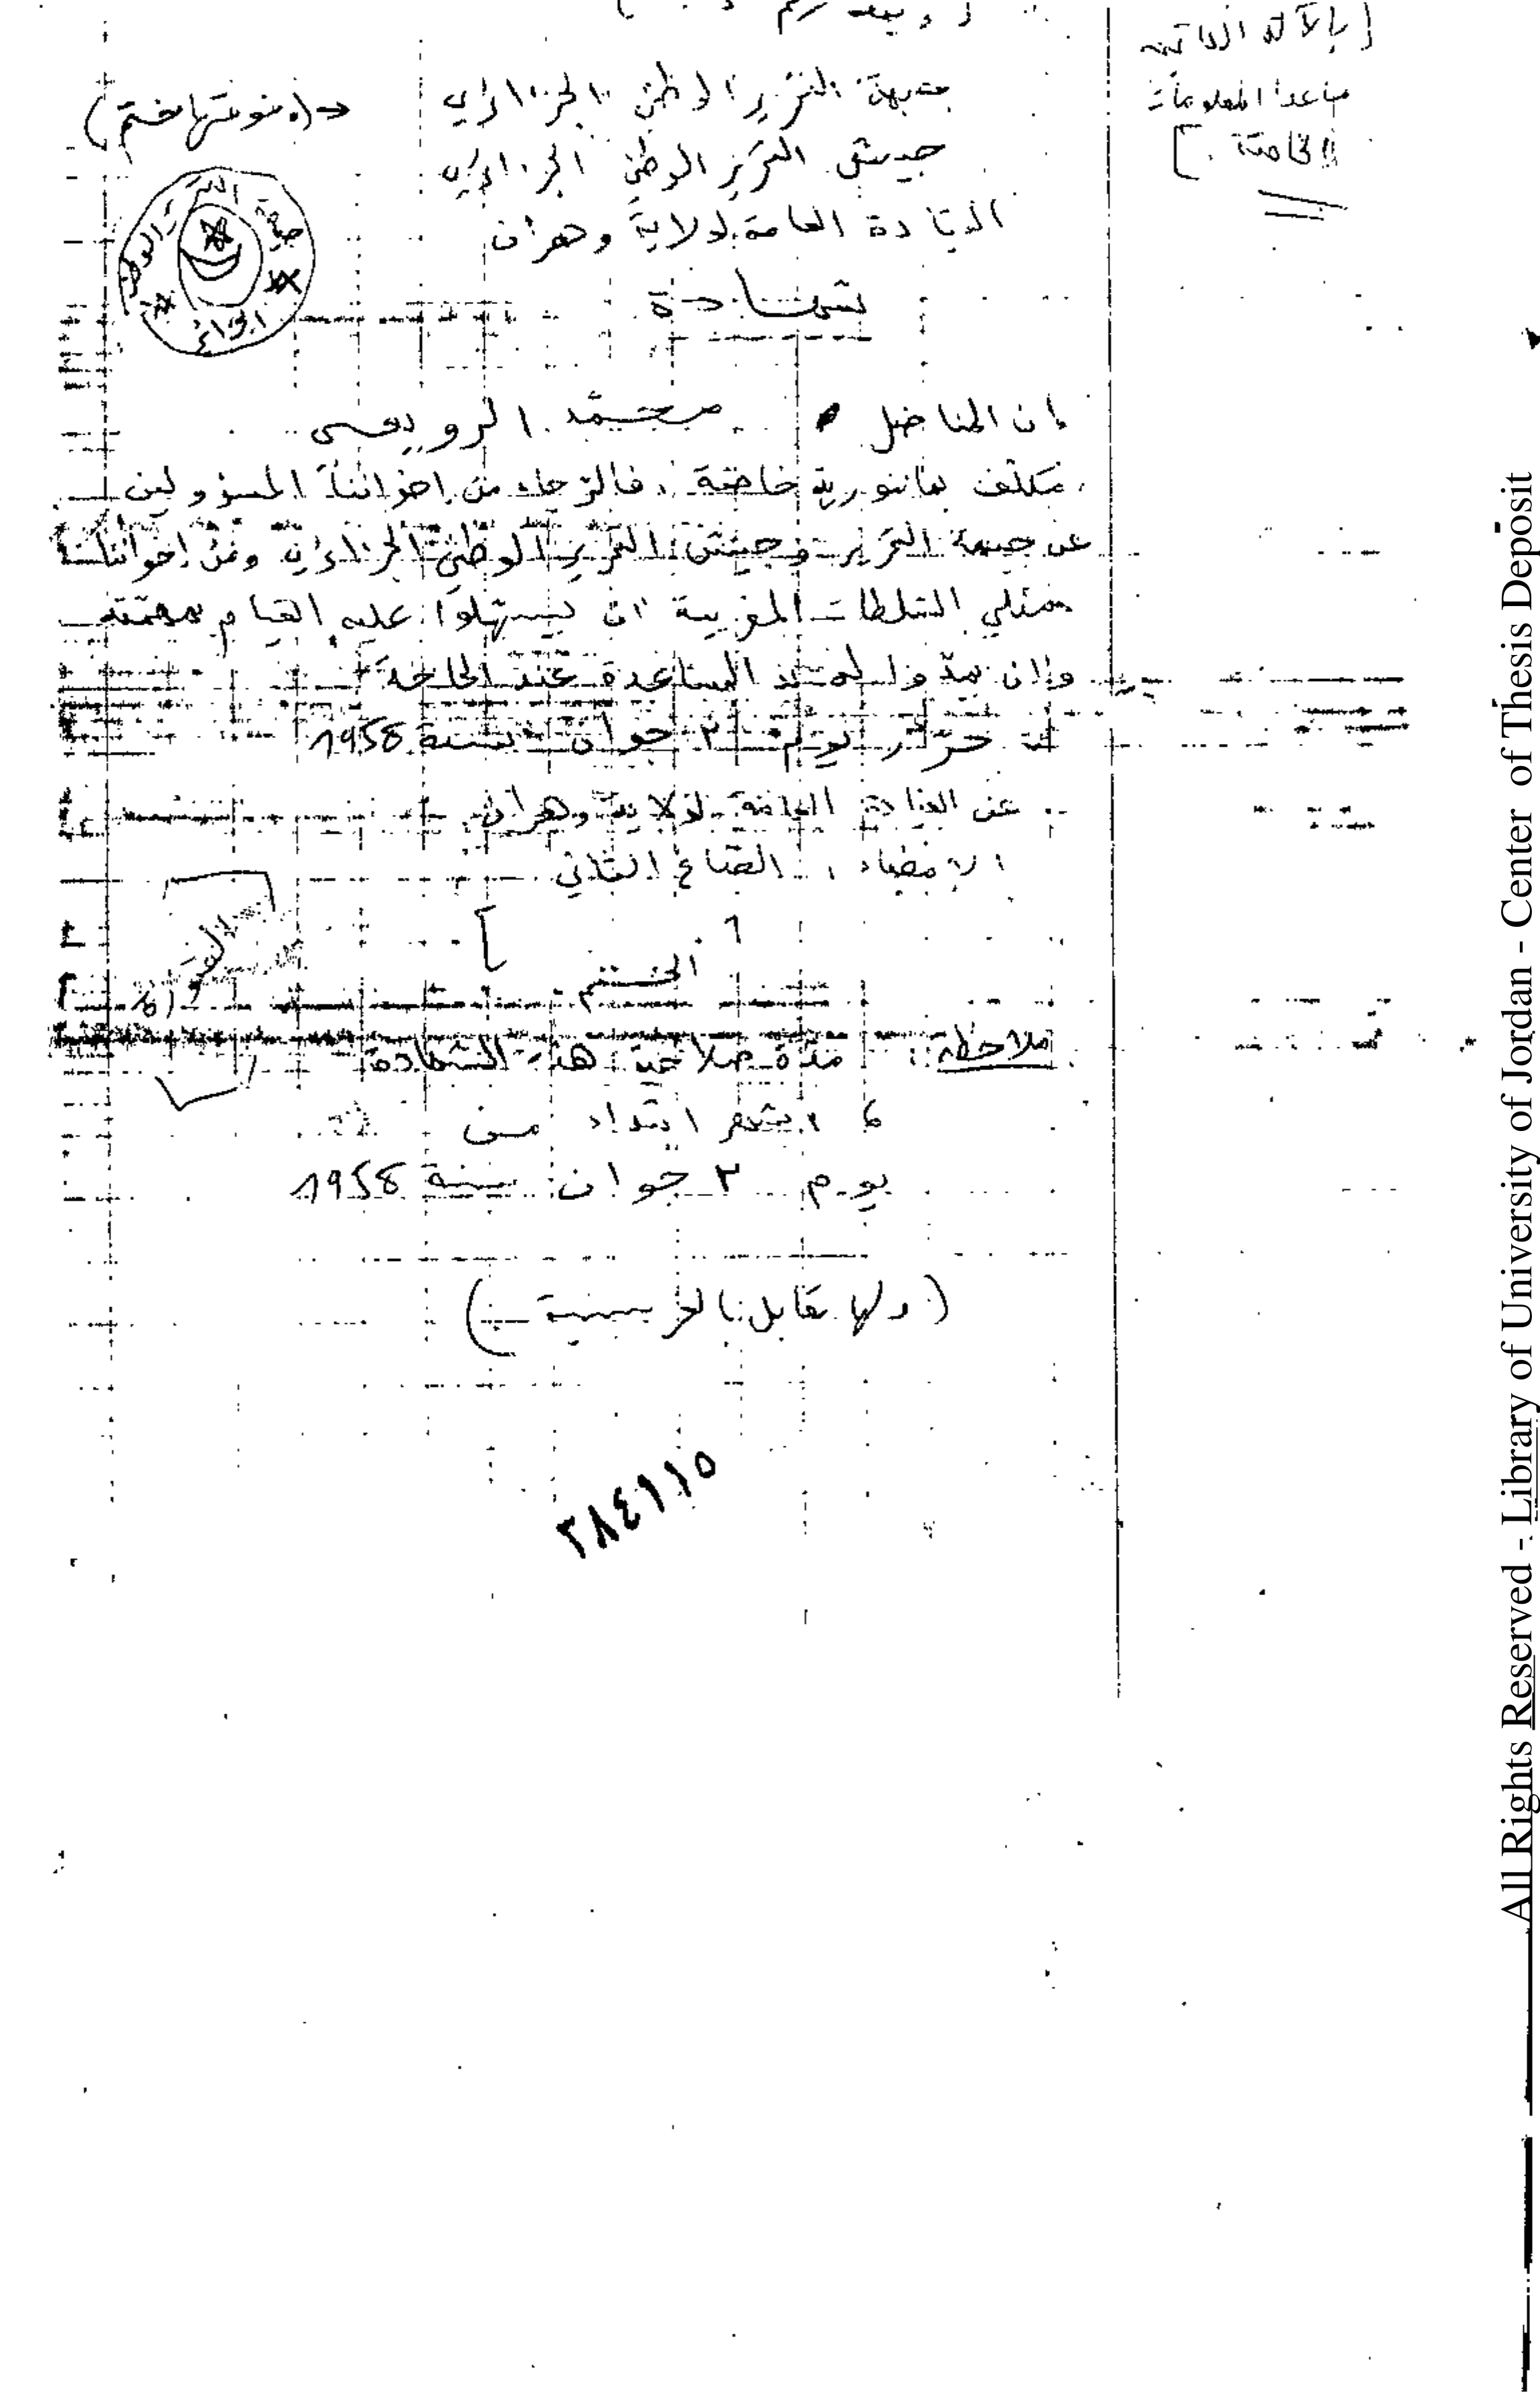 [بالآلة الكاتبة
ماعدا المعلومات
الخاصة.]
جبهة التحرير الوطني الجزائري
→ (فوقها ختم)
جيش التحرير الوطني الجزائري
القيادة العامة لولاية وهران
جبهة التحرير الوطني
الجزائر
شهادة
إن المناضل محمّد الرويسي
مكلف بمأمورية خاصة. فالرجاء من إخواننا المسؤولين
عن جبهة التحرير وجيش التحرير الوطني الجزائري ومن إخواننا
ممثلي السّلطات المغربية ان يسهّلوا عليه القيام بمهمّته
وان يمدّوا له يد المساعدة عند الحاجة
حرّر يوم ٢ جوان سنة 1958
عن القيادة العامة لولاية وهران
الإمضاء: الصاغ الثاني
[الختم]
ملاحظة: مدّة صلاحية هذه الشهادة
٦ اشهر ابتداء من
يوم ٢ جوان سنة 1958
(ولها مقابل بالفرنسية)
٥١١٤٨٢
All Rights Reserved - Library of University of Jordan - Center of Thesis Deposit